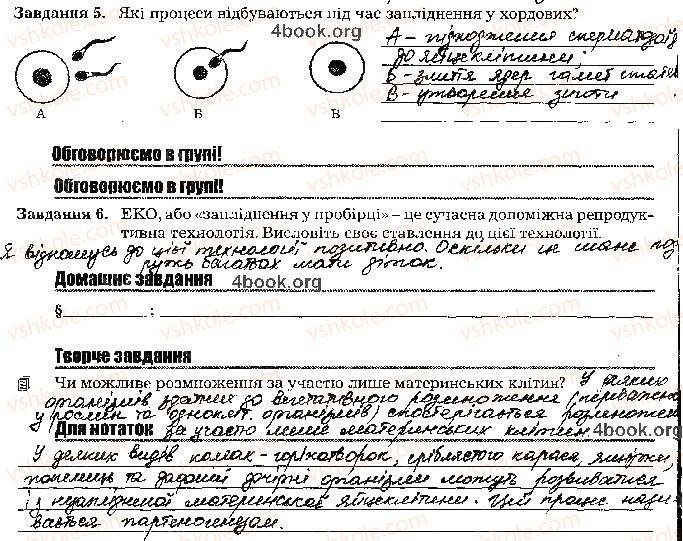 Завдання 5. Які процеси відбуваються під час запліднення у хордових?
4book.org
А - підходження сперматозоїд
до яйцеклітини;
Б - злиття ядер гамет статев
В - утворення зиготи
А Б В
Обговорюємо в групі!
Обговорюємо в групі!
Завдання 6. ЕКО, або «запліднення у пробірці» – це сучасна допоміжна репродук-
тивна технологія. Висловіть своє ставлення до цієї технології.
Я відношусь до цієї технології позитивно. Оскільки це шанс по
багатьох мати діток.
Домашнє завдання 4book.org
§ :
Творче завдання
Чи можливе розмноження за участю лише материнських клітин? У деяких
організмів здатних до вегетативного розмноження (переважно
у рослин та однокліт. організмів) спостерігається розмноження
Для нотаток за участю лише материнських клітин. 4book.org
У деяких видів комах - горіхотворок, сріблястого карася, ящірки,
попелиць та дафній дочірні організми можуть розвиватися
із незаплідненої материнської яйцеклітини. Цей процес нази-
вається партеногенезом.